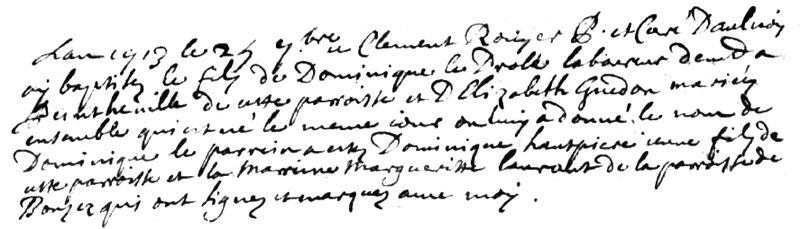 Lan 1713 le 25 9bre Clement Royer P. et Curé Daulnoy
ay baptisez le fils de Dominique le Drolle laboureur demt a
de cette parroisse et D Elizabeth Guedon mariez
ensemble qui est né le meme iour on luy a donné le nom de
Dominique le parrein a estez Dominique hautpiere ieune fils de
cette parroisse et la Marrinne Margueritte laurent de la parroisse de
qui ont signez et marquez avec moy .